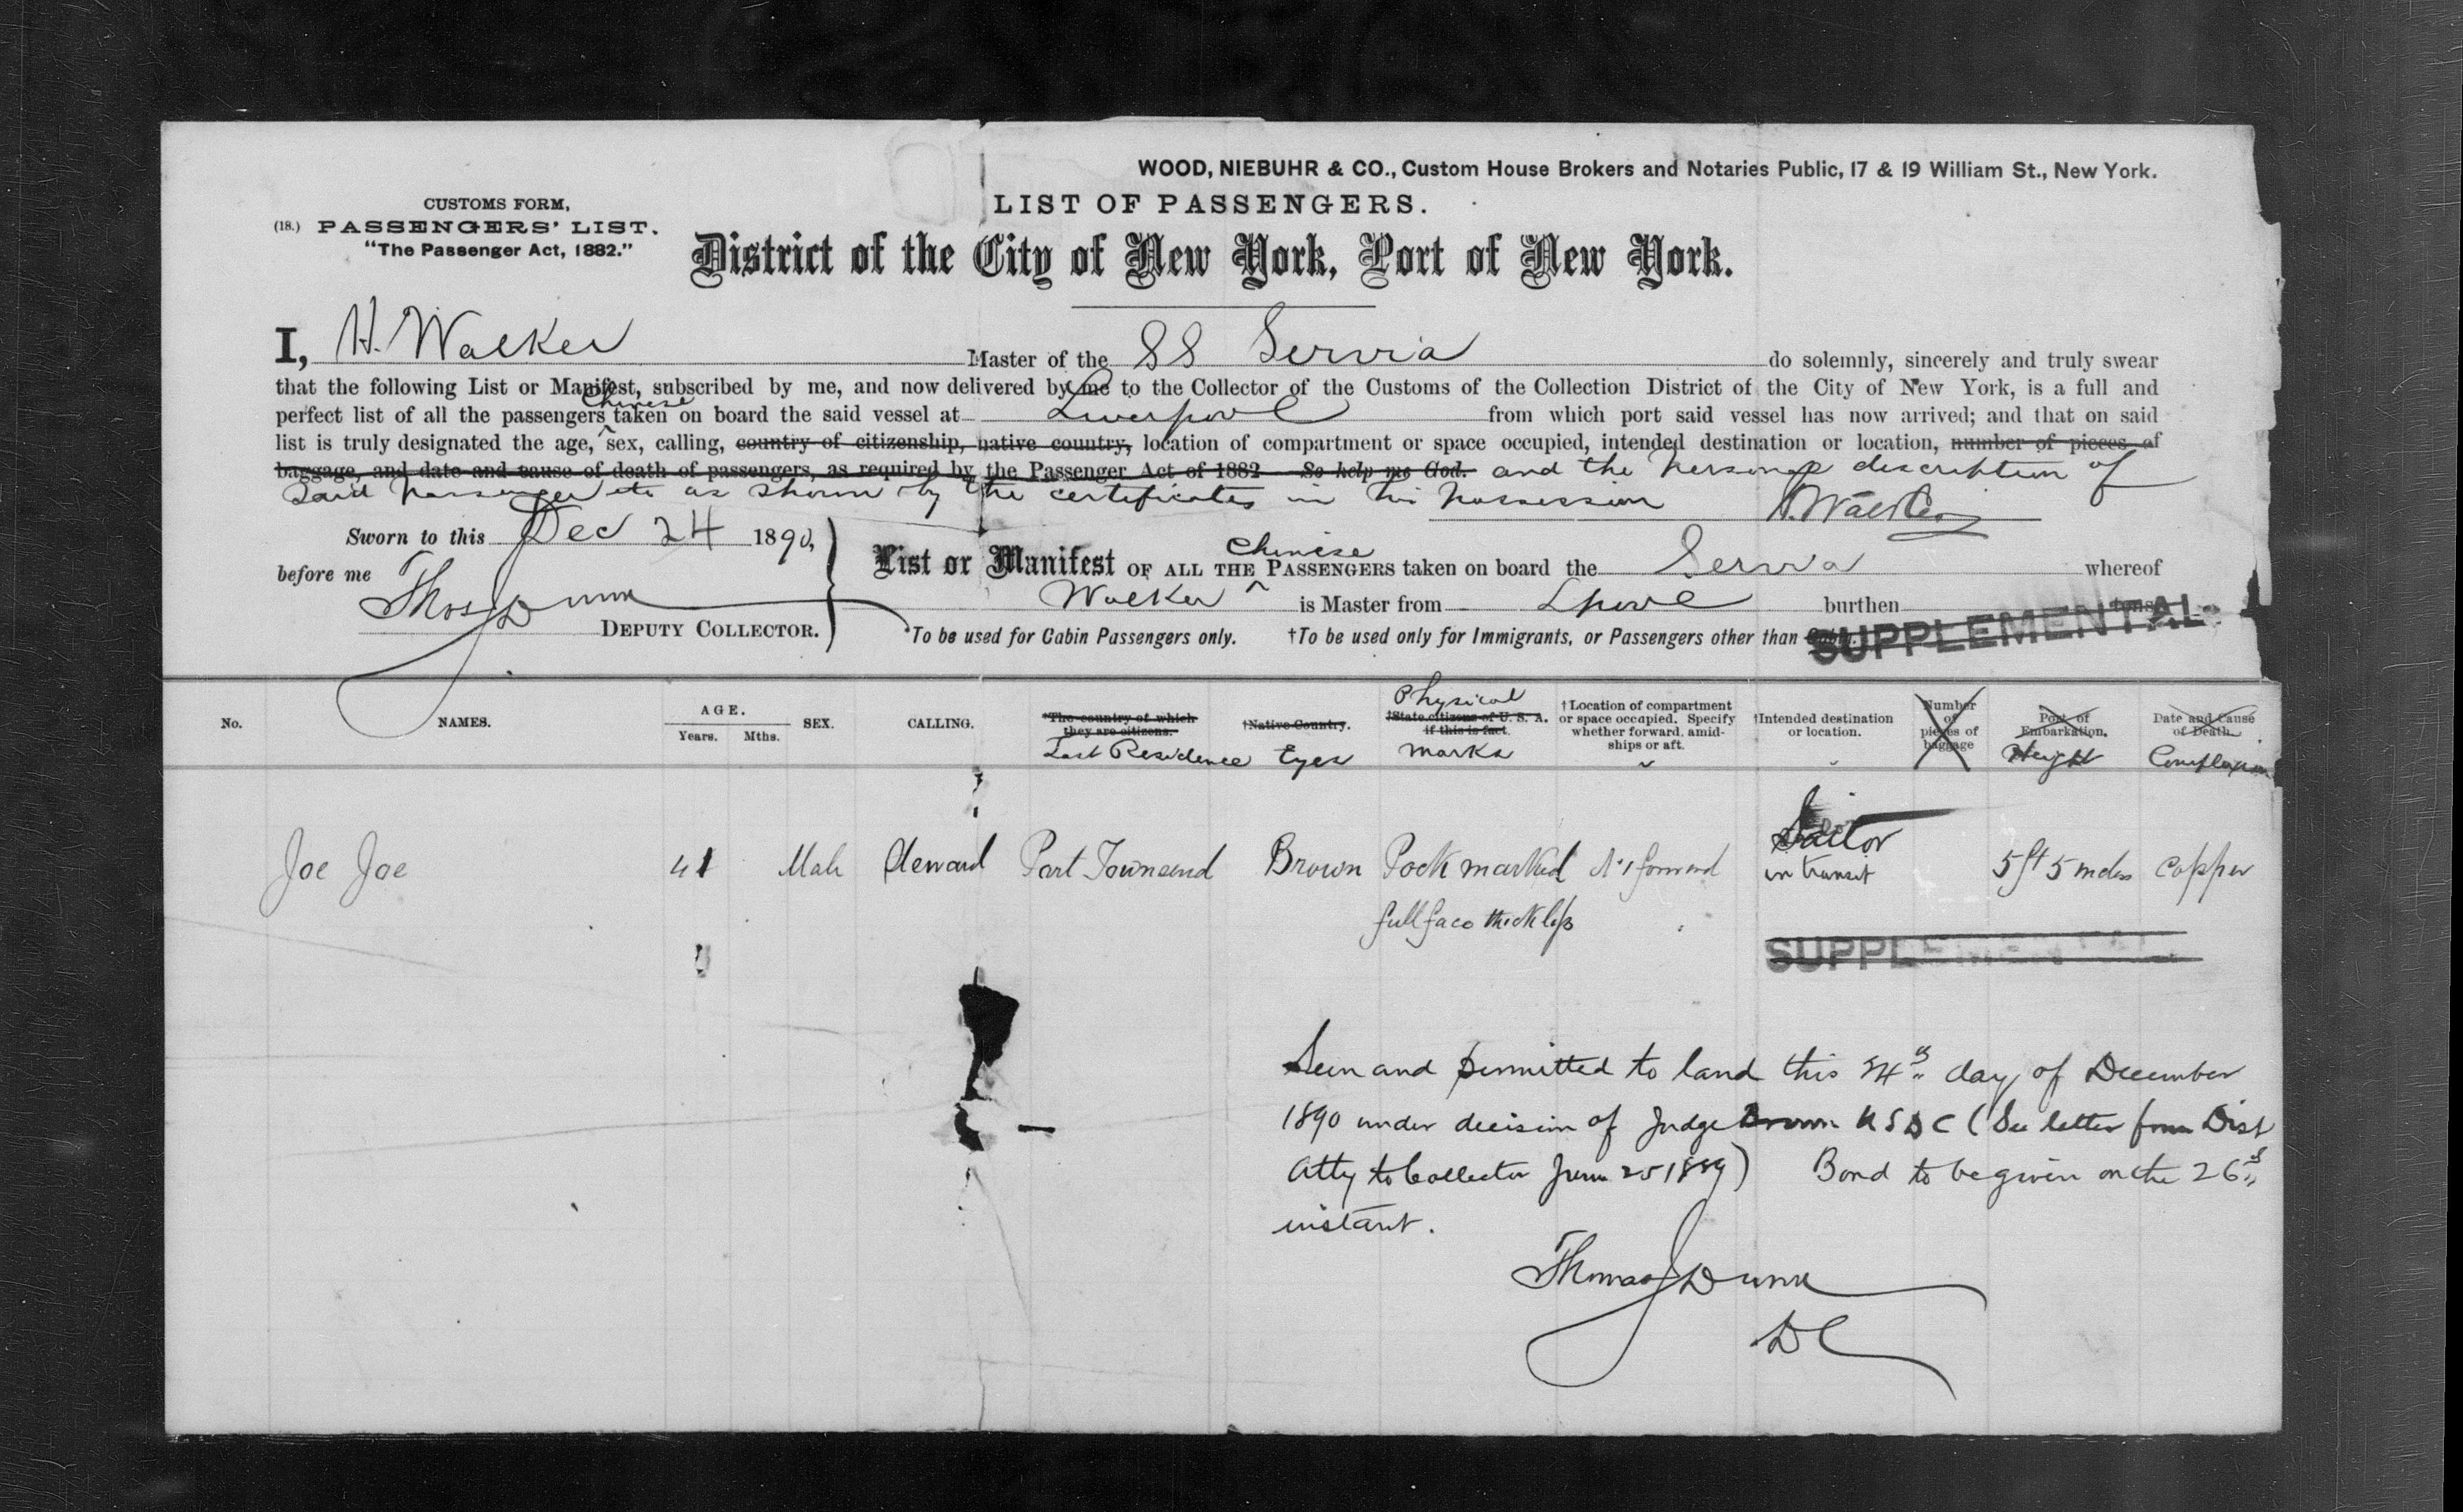 WOOD, NIEBUHR & CO., Custom House Brokers and Notaries Public, 17 & 19 William St., New York.
CUSTOMS FORM,
(18.) PASSENGERS' LIST.
"The Passenger Act, 1882."
LIST OF PASSENGERS.
District of the City of New York, Port of New York.
I, H. Walker Master of the SS Servia do solemnly, sincerely and truly swear
that the following List or Manifest, subscribed by me, and now delivered by me to the Collector of the Customs of the Collection District of the City of New York, is a full and
Chinese
perfect list of all the passengers taken on board the said vessel at Liverpool from which port said vessel has now arrived; and that on said
list is truly designated the age, sex, calling, country of citizenship, native country, location of compartment or space occupied, intended destination or location, number of pieces of
baggage, and date and cause of death of passengers, as required by the Passenger Act of 1882 So help me God. and the personal description of
said passenger etc as shown by the certificates in his possession H. Walker
Sworn to this Dec 24 1890,
before me
Thos J Dunn
DEPUTY COLLECTOR.
Chinese
List or Manifest OF ALL THE PASSENGERS taken on board the Servia whereof
Walker is Master from Lpool burthen tons
*To be used for Cabin Passengers only. †To be used only for Immigrants, or Passengers other than Cabin.
SUPPLEMENTAL
No. NAMES. AGE. Years. Mths. SEX. CALLING. *The country of which they are citizens. Last Residence †Native Country. Eyes Physical †State citizens of U. S. A. if this is fact. Marks †Location of compartment or space occupied. Specify whether forward, amidships or aft. †Intended destination or location. Number of pieces of baggage Port of Embarkation. Height Date and Cause of Death. Complexion
Joe Joe 41 Male Steward Port Townsend Brown Pock marked No 1 forward Sailor 5 ft 5 inches Copper
in transit
full face thick lips
SUPPLEMENTAL
Seen and permitted to land this 24th day of December
1890 under decision of Judge Brown U S D C (See letter from Dist
Atty to Collector June 25 1889) Bond to be given on the 26th
instant.
Thomas J Dunn
DC